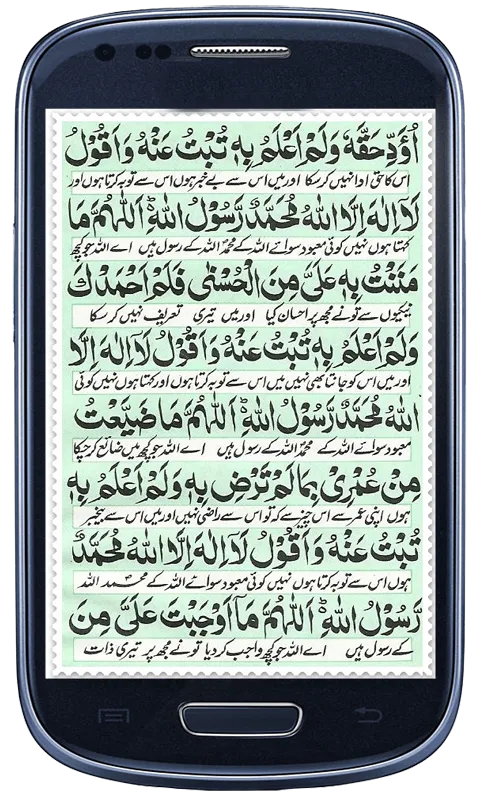 اُؤَدِّ حَقَّهٗ وَلَمْ اَعْلَمُ بِهٖ تُبْتُ عَنْهُ وَاَقُوْلُ
اس کا حق ادا نہیں کر سکا اور میں اس سے بے خبر ہوں اس سے توبہ کرتا ہوں اور
لَآ اِلٰهَ اِلَّا اللهُ مُحَمَّدٌ رَّسُوْلُ اللهِ اَللّٰهُمَّ مَا
کہتا ہوں نہیں کوئی معبود سوائے اللہ کے محمدؐ اللہ کے رسول ہیں اے اللہ جو کچھ
مَنَنْتَ بِهٖ عَلَیَّ مِنَ الْحُسْنٰی فَلَمْ اَحْمَدْكَ
نیکیوں سے تو نے مجھ پر احسان کیا اور میں تیری تعریف نہیں کر سکا
وَلَمْ اَعْلَمُ بِهٖ تُبْتُ عَنْهُ وَاَقُوْلُ لَآ اِلٰهَ اِلَّا
اور میں اس کو جانتا بھی نہیں میں اس سے توبہ کرتا ہوں اور کہتا ہوں نہیں کوئی
اللهُ مُحَمَّدٌ رَّسُوْلُ اللهِ اَللّٰهُمَّ مَا ضَیَّعْتُ
معبود سوائے اللہ کے محمدؐ اللہ کے رسول ہیں اے اللہ جو کچھ میں ضائع کر چکا
مِنْ عُمْرِیْ بِمَا لَمْ تَرْضَ بِهٖ وَلَمْ اَعْلَمُ بِهٖ
ہوں اپنی عمر سے اس چیز سے کہ تو اس سے راضی نہیں اور میں اس سے بیخبر
تُبْتُ عَنْهُ وَاَقُوْلُ لَآ اِلٰهَ اِلَّا اللهُ مُحَمَّدٌ
ہوں اس سے توبہ کرتا ہوں نہیں کوئی معبود سوائے اللہ کے محمد اللہ
رَّسُوْلُ اللهِ اَللّٰهُمَّ مَآ اَوْجَبْتَ عَلَیَّ مِنَ
کے رسول ہیں اے اللہ جو کچھ واجب کر دیا تو نے مجھ پر تیری ذات